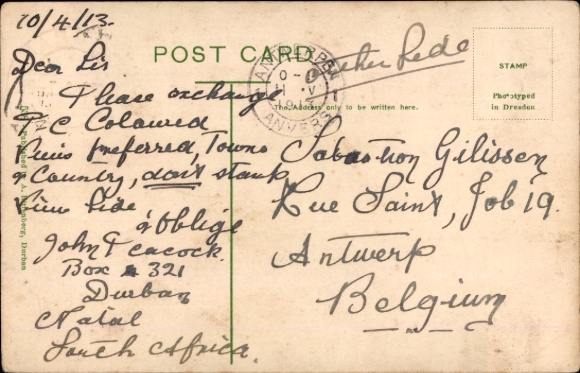 10/4/13.
Dear Sir
Please exchange
P C Coloured
Views preferred, Towns
& Country, don't stamp
View Side
& Oblige
John Peacock.
Box 321
Durban
Natal
South Africa.
POST CARD
other Side
ANTWERPEN
ANVERS
The Address only to be written here.
STAMP
Phototyped
in Dresden
Sebastion Gilissen
Rue Saint, Job 19.
Antwerp
Belgium
A. Rittenberg, Durban